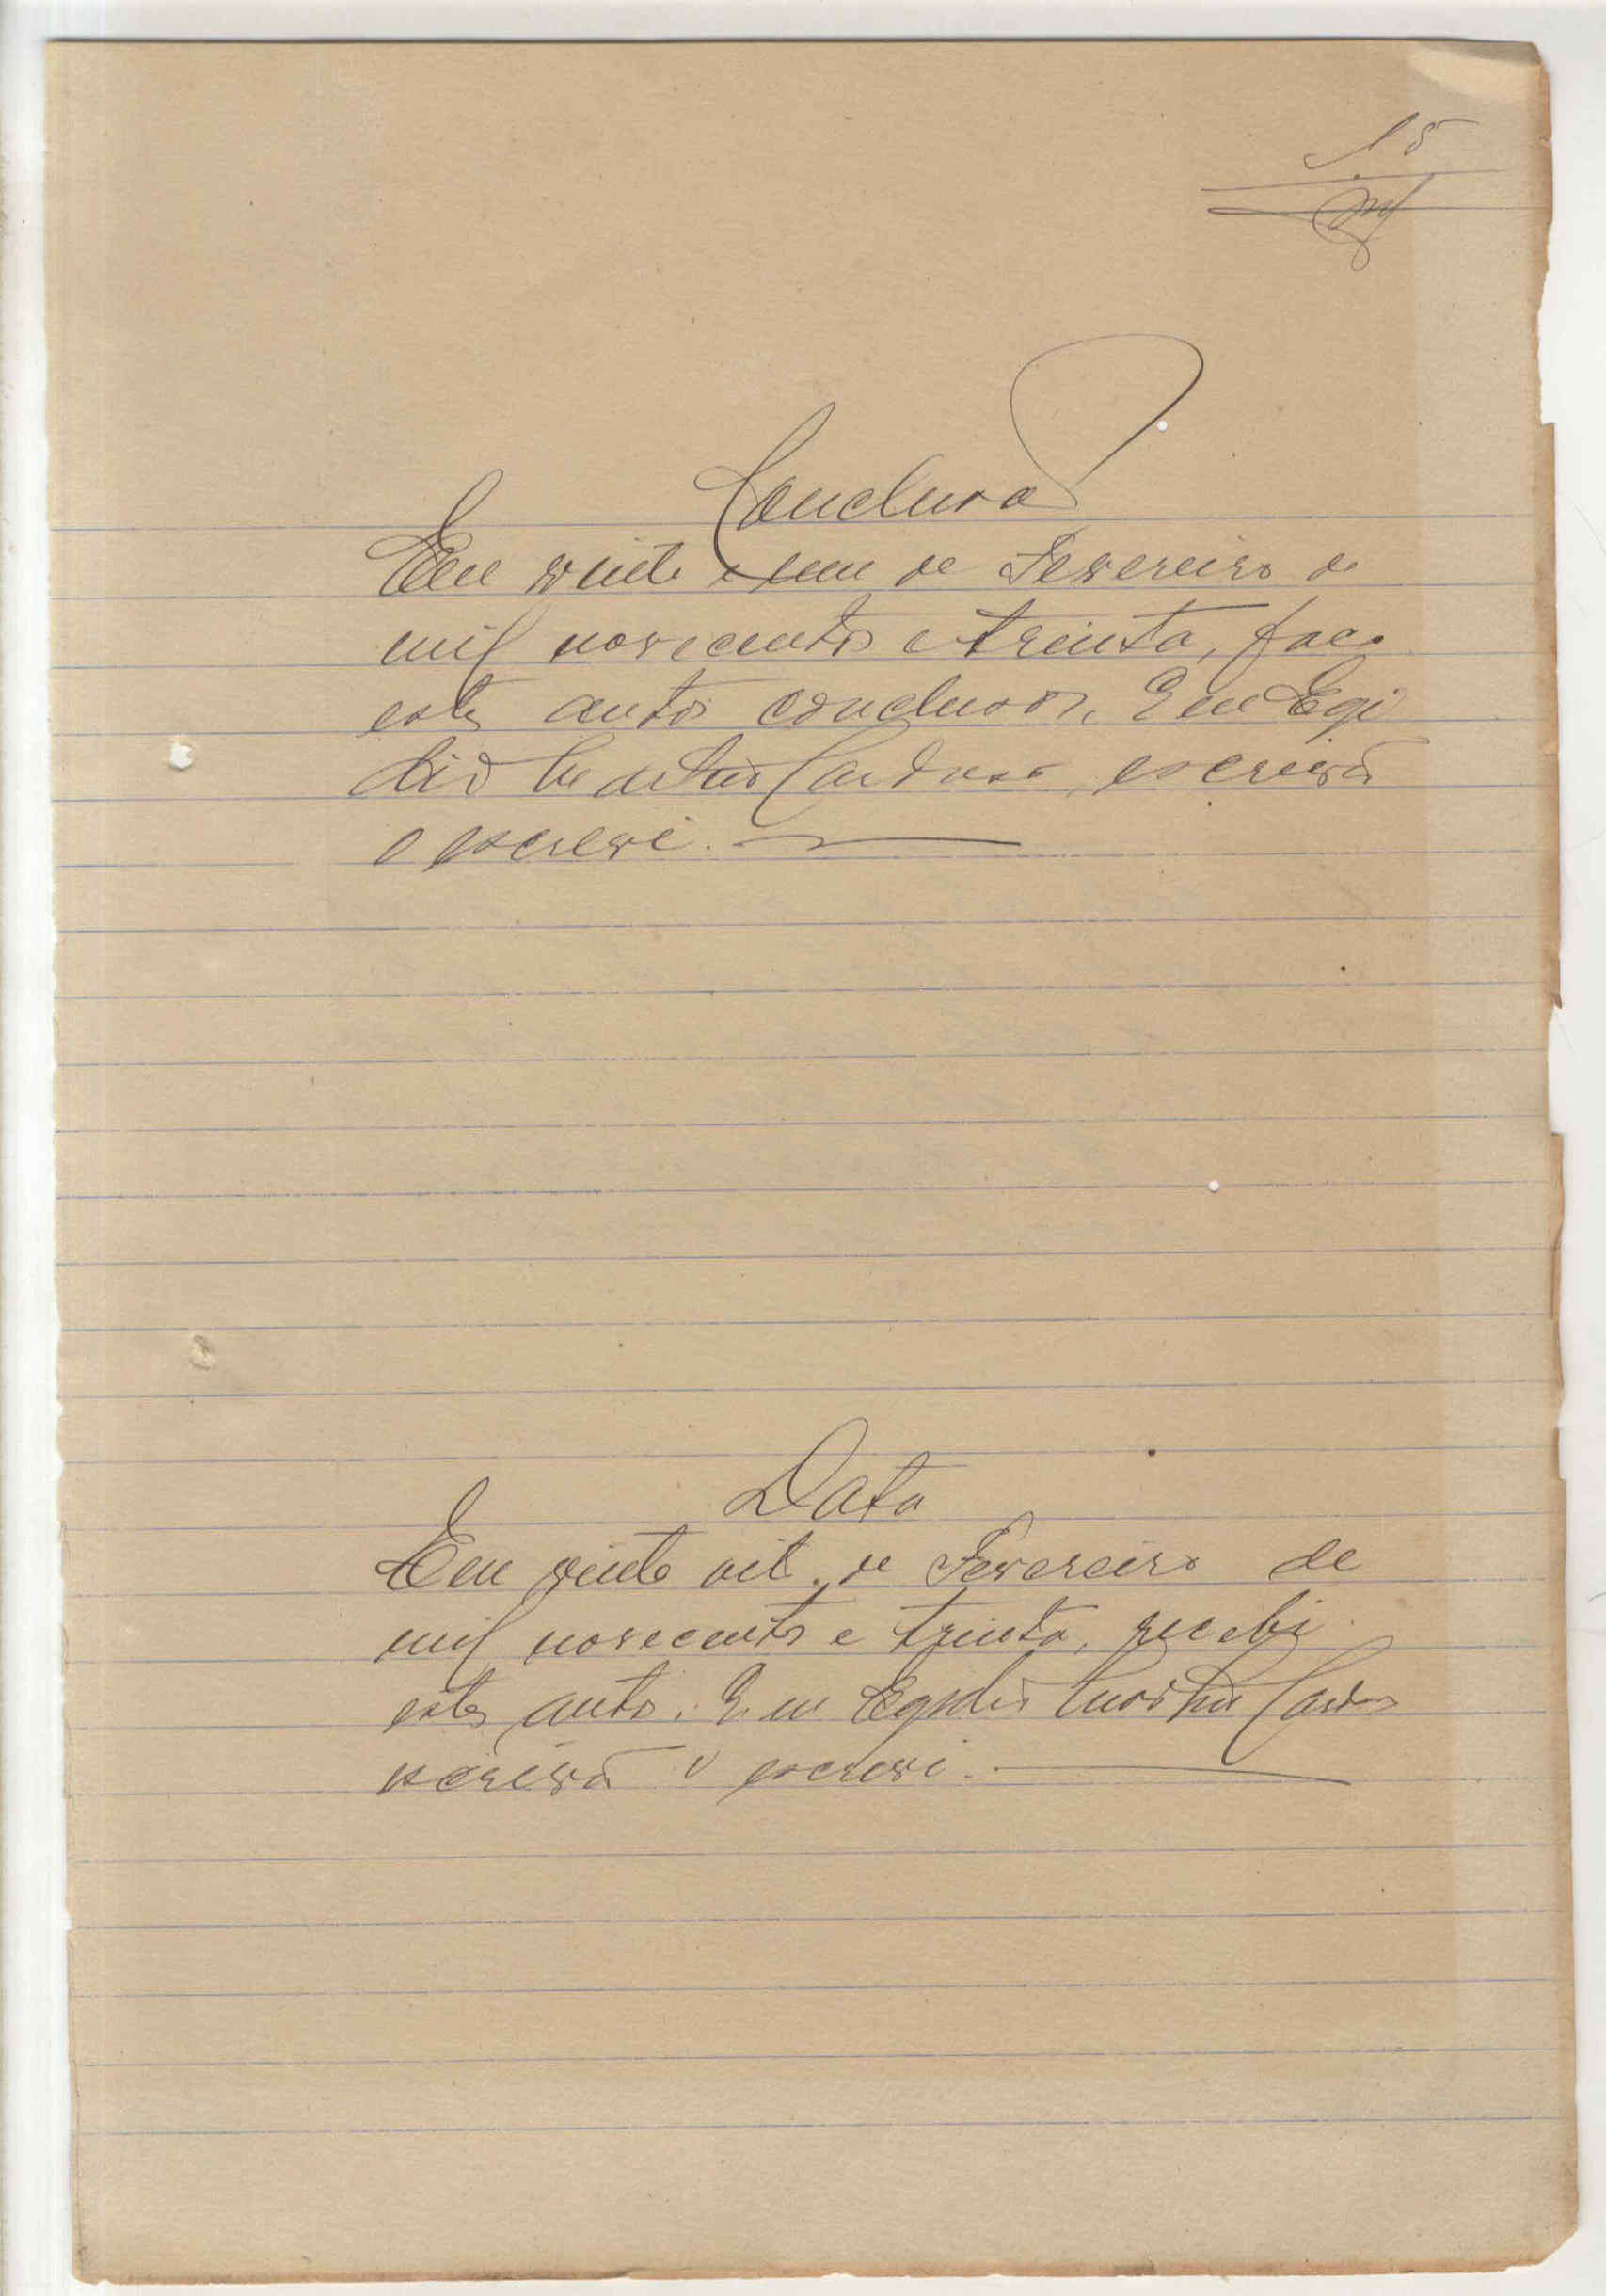 15
Conclusão
Em vinte e um de Fevereiro de
mil novecentos e trinta, faço
estes autos conclusos. Eu Egi
dio Cardoso, escrivã
o escrevi.
Data
Em vinte oito de Fevereiro de
mil novecentos e trinta, recebi
estes autos. Eu Egydio
escrivã o escrevi.